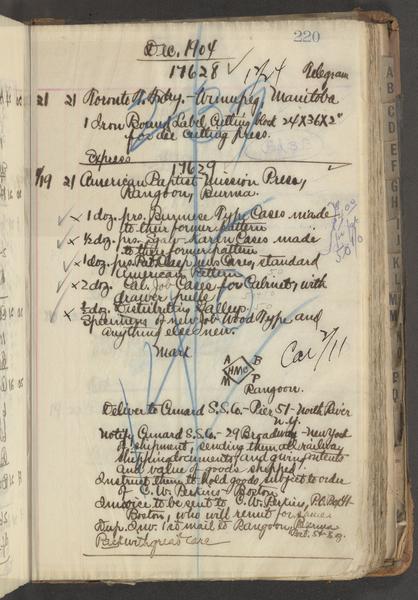 220
Dec. 1904
17628 ✓
Telegram
21 21 Toronto Ry. - Winnipeg, Manitoba
1 Iron Bound Label Cutting Block 24 X 36 X 2"
for die cutting press.
Express
17629
/19 21 American Baptist Mission Press,
Rangoon, Burma.
x 1 doz. prs. Burmese Type Cases made
to their former pattern
x ½ doz. prs. Sgaw-Karen Cases made
to their former pattern
x 1 doz. prs. Cases, standard
American Pattern
x 2 doz. Cal. Job Cases for Cabinet, with
drawer pulls
x ½ doz. Distributing Galleys
x Specimens of new Job Wood Type and
anything else new.
Mark
Car 2/11
A B
HMC
M P
Rangoon.
Deliver to Cunard S.S. Co - Pier 51 - North River
N.Y.
Notify Cunard S.S. Co - 29 Broadway - New York
of shipment, sending them all railway
shipping documents, and giving contents
and value of goods shipped.
Instruct them to hold goods subject to order
of C. W. Perkins - Boston
Invoice to be sent to C. W. Perkins,
Boston, who will remit for same
Dup. Inv. 1st mail to Rangoon, Burma
Pack with great care
A
B
C
D
E
F
G
H